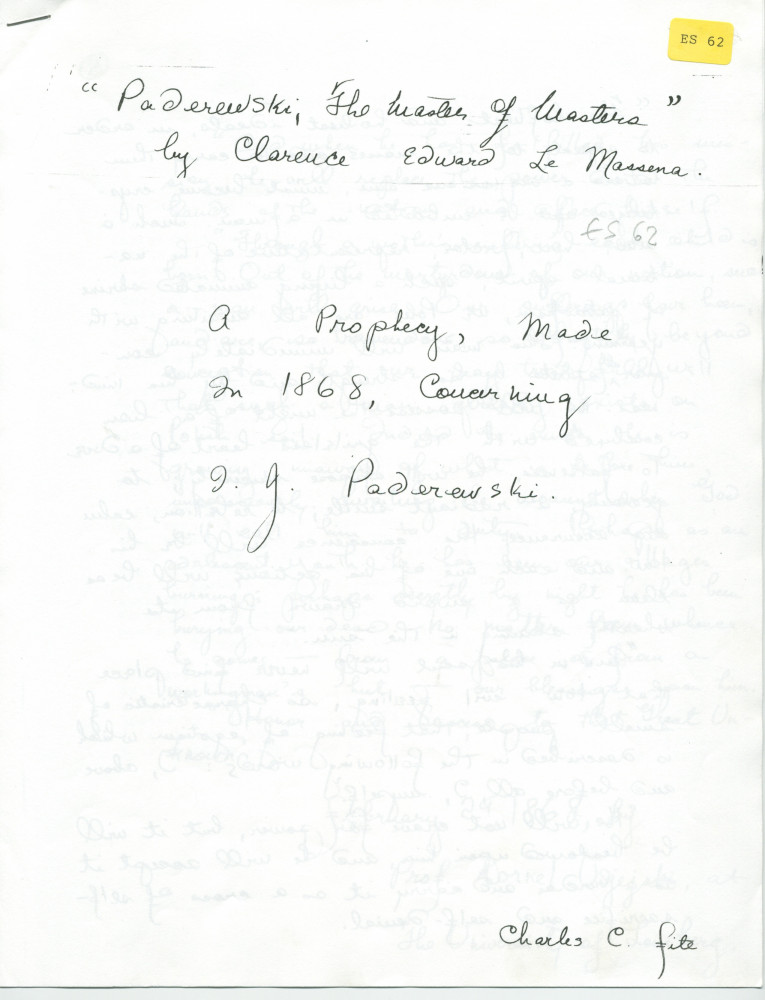 ES 62
"Paderewski, The Master of Masters"
by Clarence Edward Le Massena.
ES 62
A Prophecy, Made
In 1868, Concerning
I. J. Paderewski.
Charles C. Fite